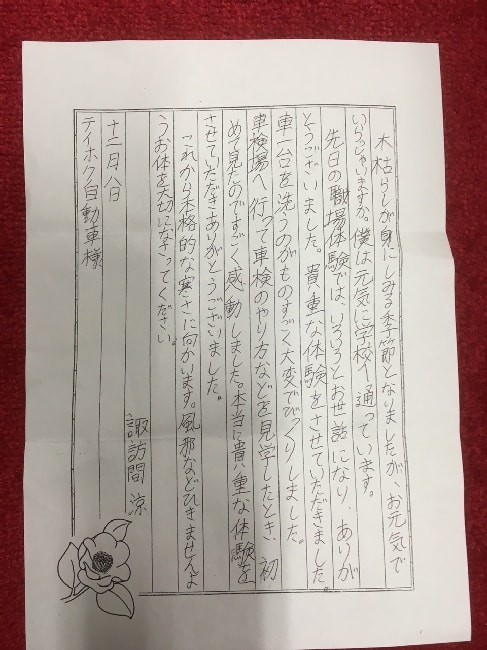 木枯らしが身にしみる季節となりましたが、お元気で
いらっしゃいますか。僕は元気に学校へ通っています。
先日の職場体験では、いろいろとお世話になり、ありが
とうございました。貴重な体験をさせていただきました。
車一台を洗うのがものすごく大変でびっくりしました。
車検場へ行って車検のやり方などを見学したとき、初
めて見たのですごく感動しました。本当に貴重な体験を
させていただきありがとうございました。
これから本格的な寒さに向かいます。風邪などひきませんよ
うお体を大切になさってください。
諏訪間 涼
十二月八日
テイホク自動車様